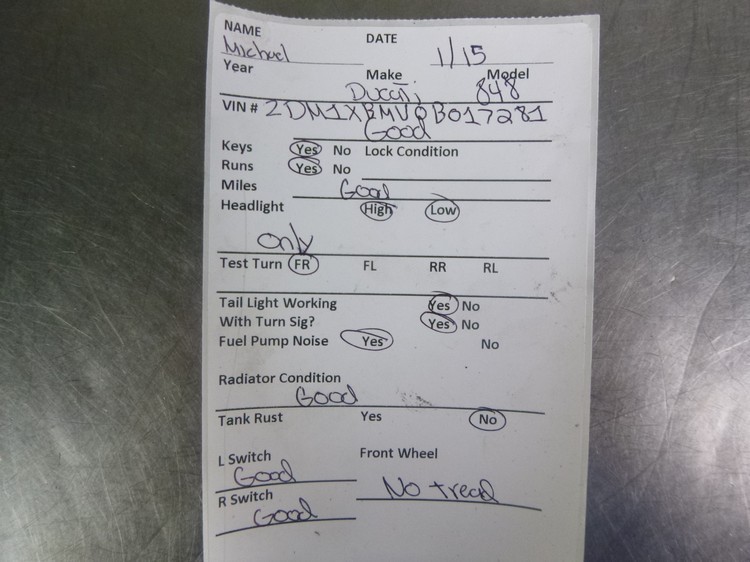 NAME Michael DATE 1/15
Year Make Ducati Model 848
VIN # ZDM1XBMV0B017281
Good
Keys Yes No Lock Condition
Runs Yes No
Miles Good
Headlight High Low
only
Test Turn FR FL RR RL
Tail Light Working Yes No
With Turn Sig? Yes No
Fuel Pump Noise Yes No
Radiator Condition
Good
Tank Rust Yes No
L Switch Good Front Wheel
R Switch Good No tread